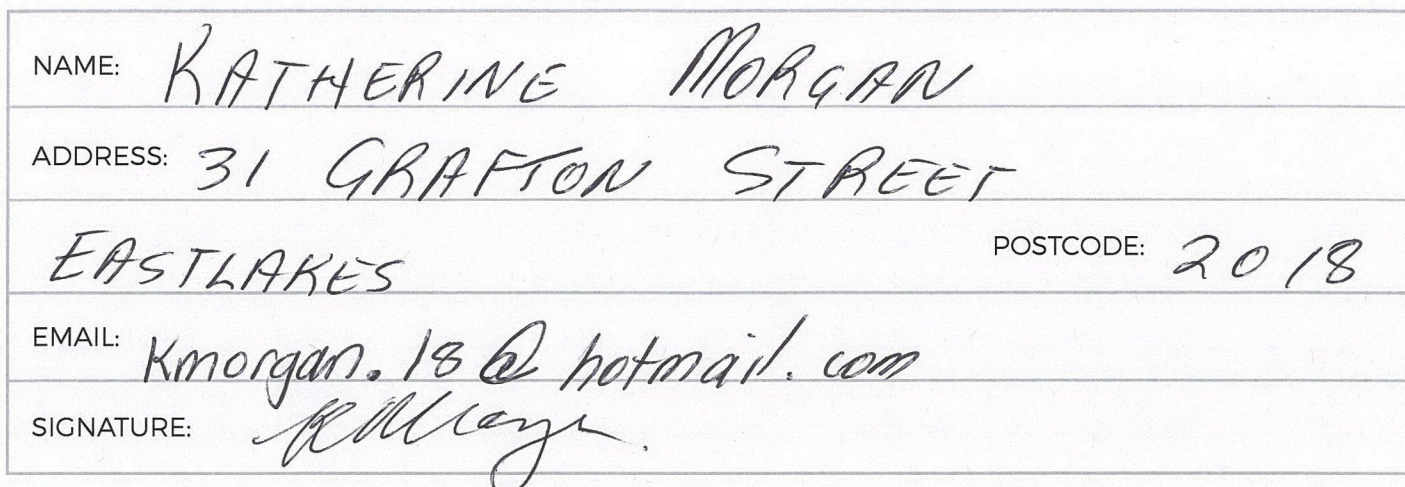 NAME: KATHERINE MORGAN
ADDRESS: 31 GRAFTON STREET
EASTLAKES POSTCODE: 2018
EMAIL: Kmorgan.18@hotmail.com
SIGNATURE: